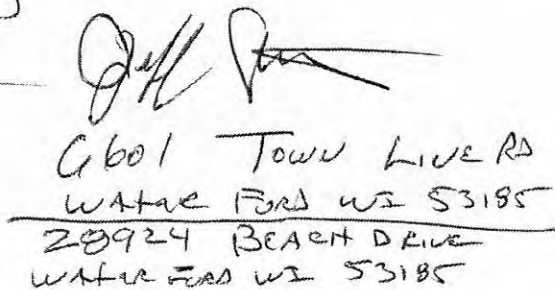 Jeff
6601 TOWN LINE RD
WATER FORD WI 53185
28924 BEACH DRIVE
WATER FORD WI 53185